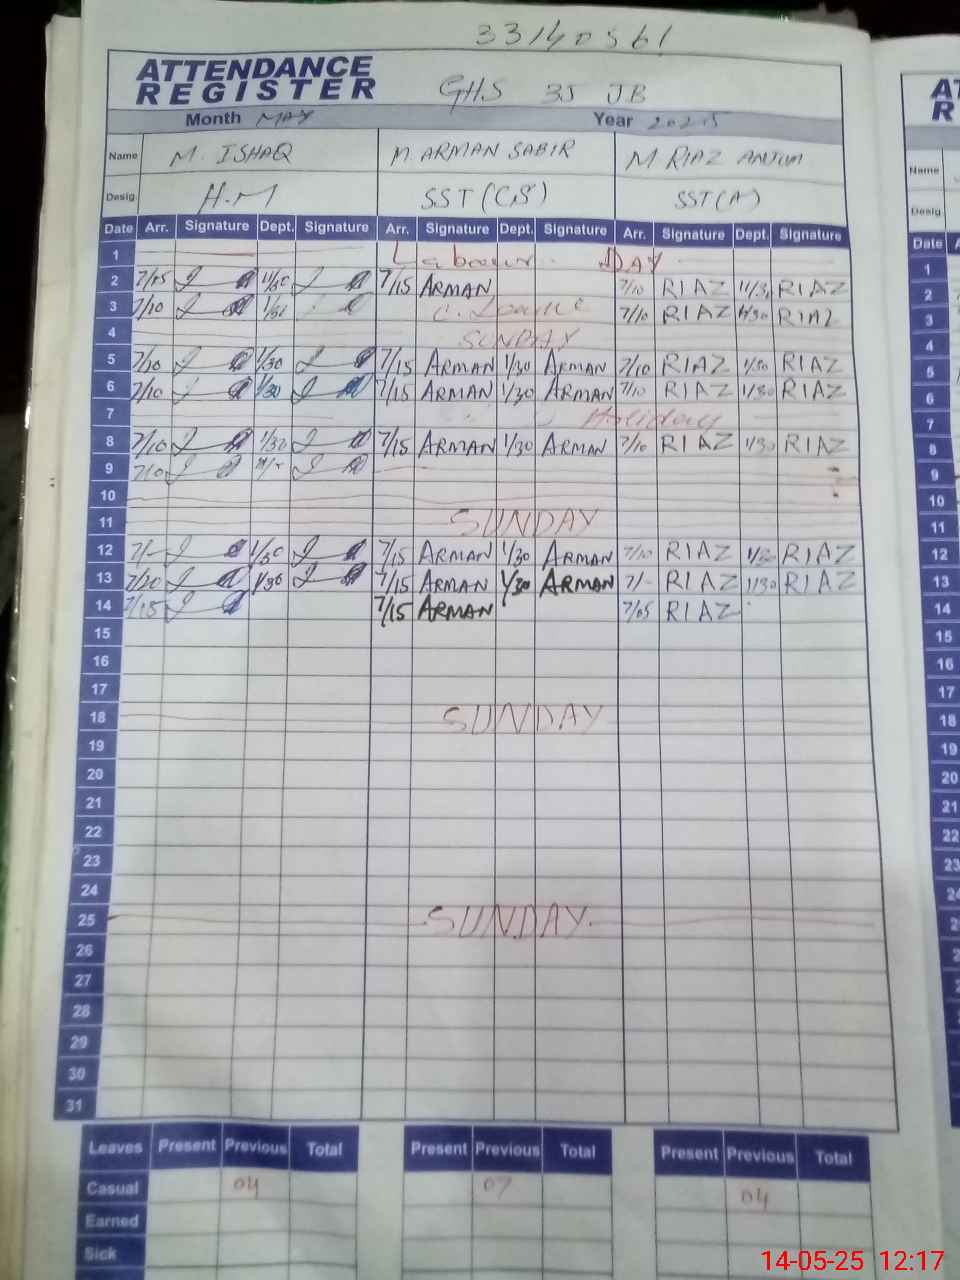 33140561
ATTENDANCE
REGISTER
GHS 35 JB
Month MAY Year 2025
Name M. ISHAQ M. ARMAN SABIR M RIAZ ANJUM
Desig. H.M SST (CS) SST (A)
Date Arr. Signature Dept. Signature Arr. Signature Dept. Signature Arr. Signature Dept. Signature
1 Labour DAY
2 7/05 11/30 7/15 ARMAN 7/10 RIAZ 11/30 RIAZ
3 7/10 C. Leave 7/10 RIAZ RIAZ
4 SUNDAY
5 7/10 1/30 7/15 ARMAN 1/30 ARMAN 7/10 RIAZ 1/30 RIAZ
6 7/10 1/30 7/15 ARMAN 1/30 ARMAN 7/10 RIAZ 1/30 RIAZ
7 Holiday
8 7/10 1/30 7/15 ARMAN 1/30 ARMAN 7/10 RIAZ 1/30 RIAZ
9 7/10
10
11 SUNDAY
12 7/- 1/30 7/15 ARMAN 1/30 ARMAN 7/10 RIAZ 1/30 RIAZ
13 7/10 1/30 7/15 ARMAN 1/30 ARMAN 7/- RIAZ 1/30 RIAZ
14 7/15 7/15 ARMAN 7/05 RIAZ
15
16
17
18 SUNDAY
19
20
21
22
23
24
25 SUNDAY.
26
27
28
29
30
31
Leaves Present Previous Total Present Previous Total Present Previous Total
Casual 04 07 04
Earned
Sick
AT
R
Name
Desig.
Date A
1
2
3
4
5
6
7
8
9
10
11
12
13
14
15
16
17
18
19
20
21
22
23
24
2
2
2
14-05-25 12:17